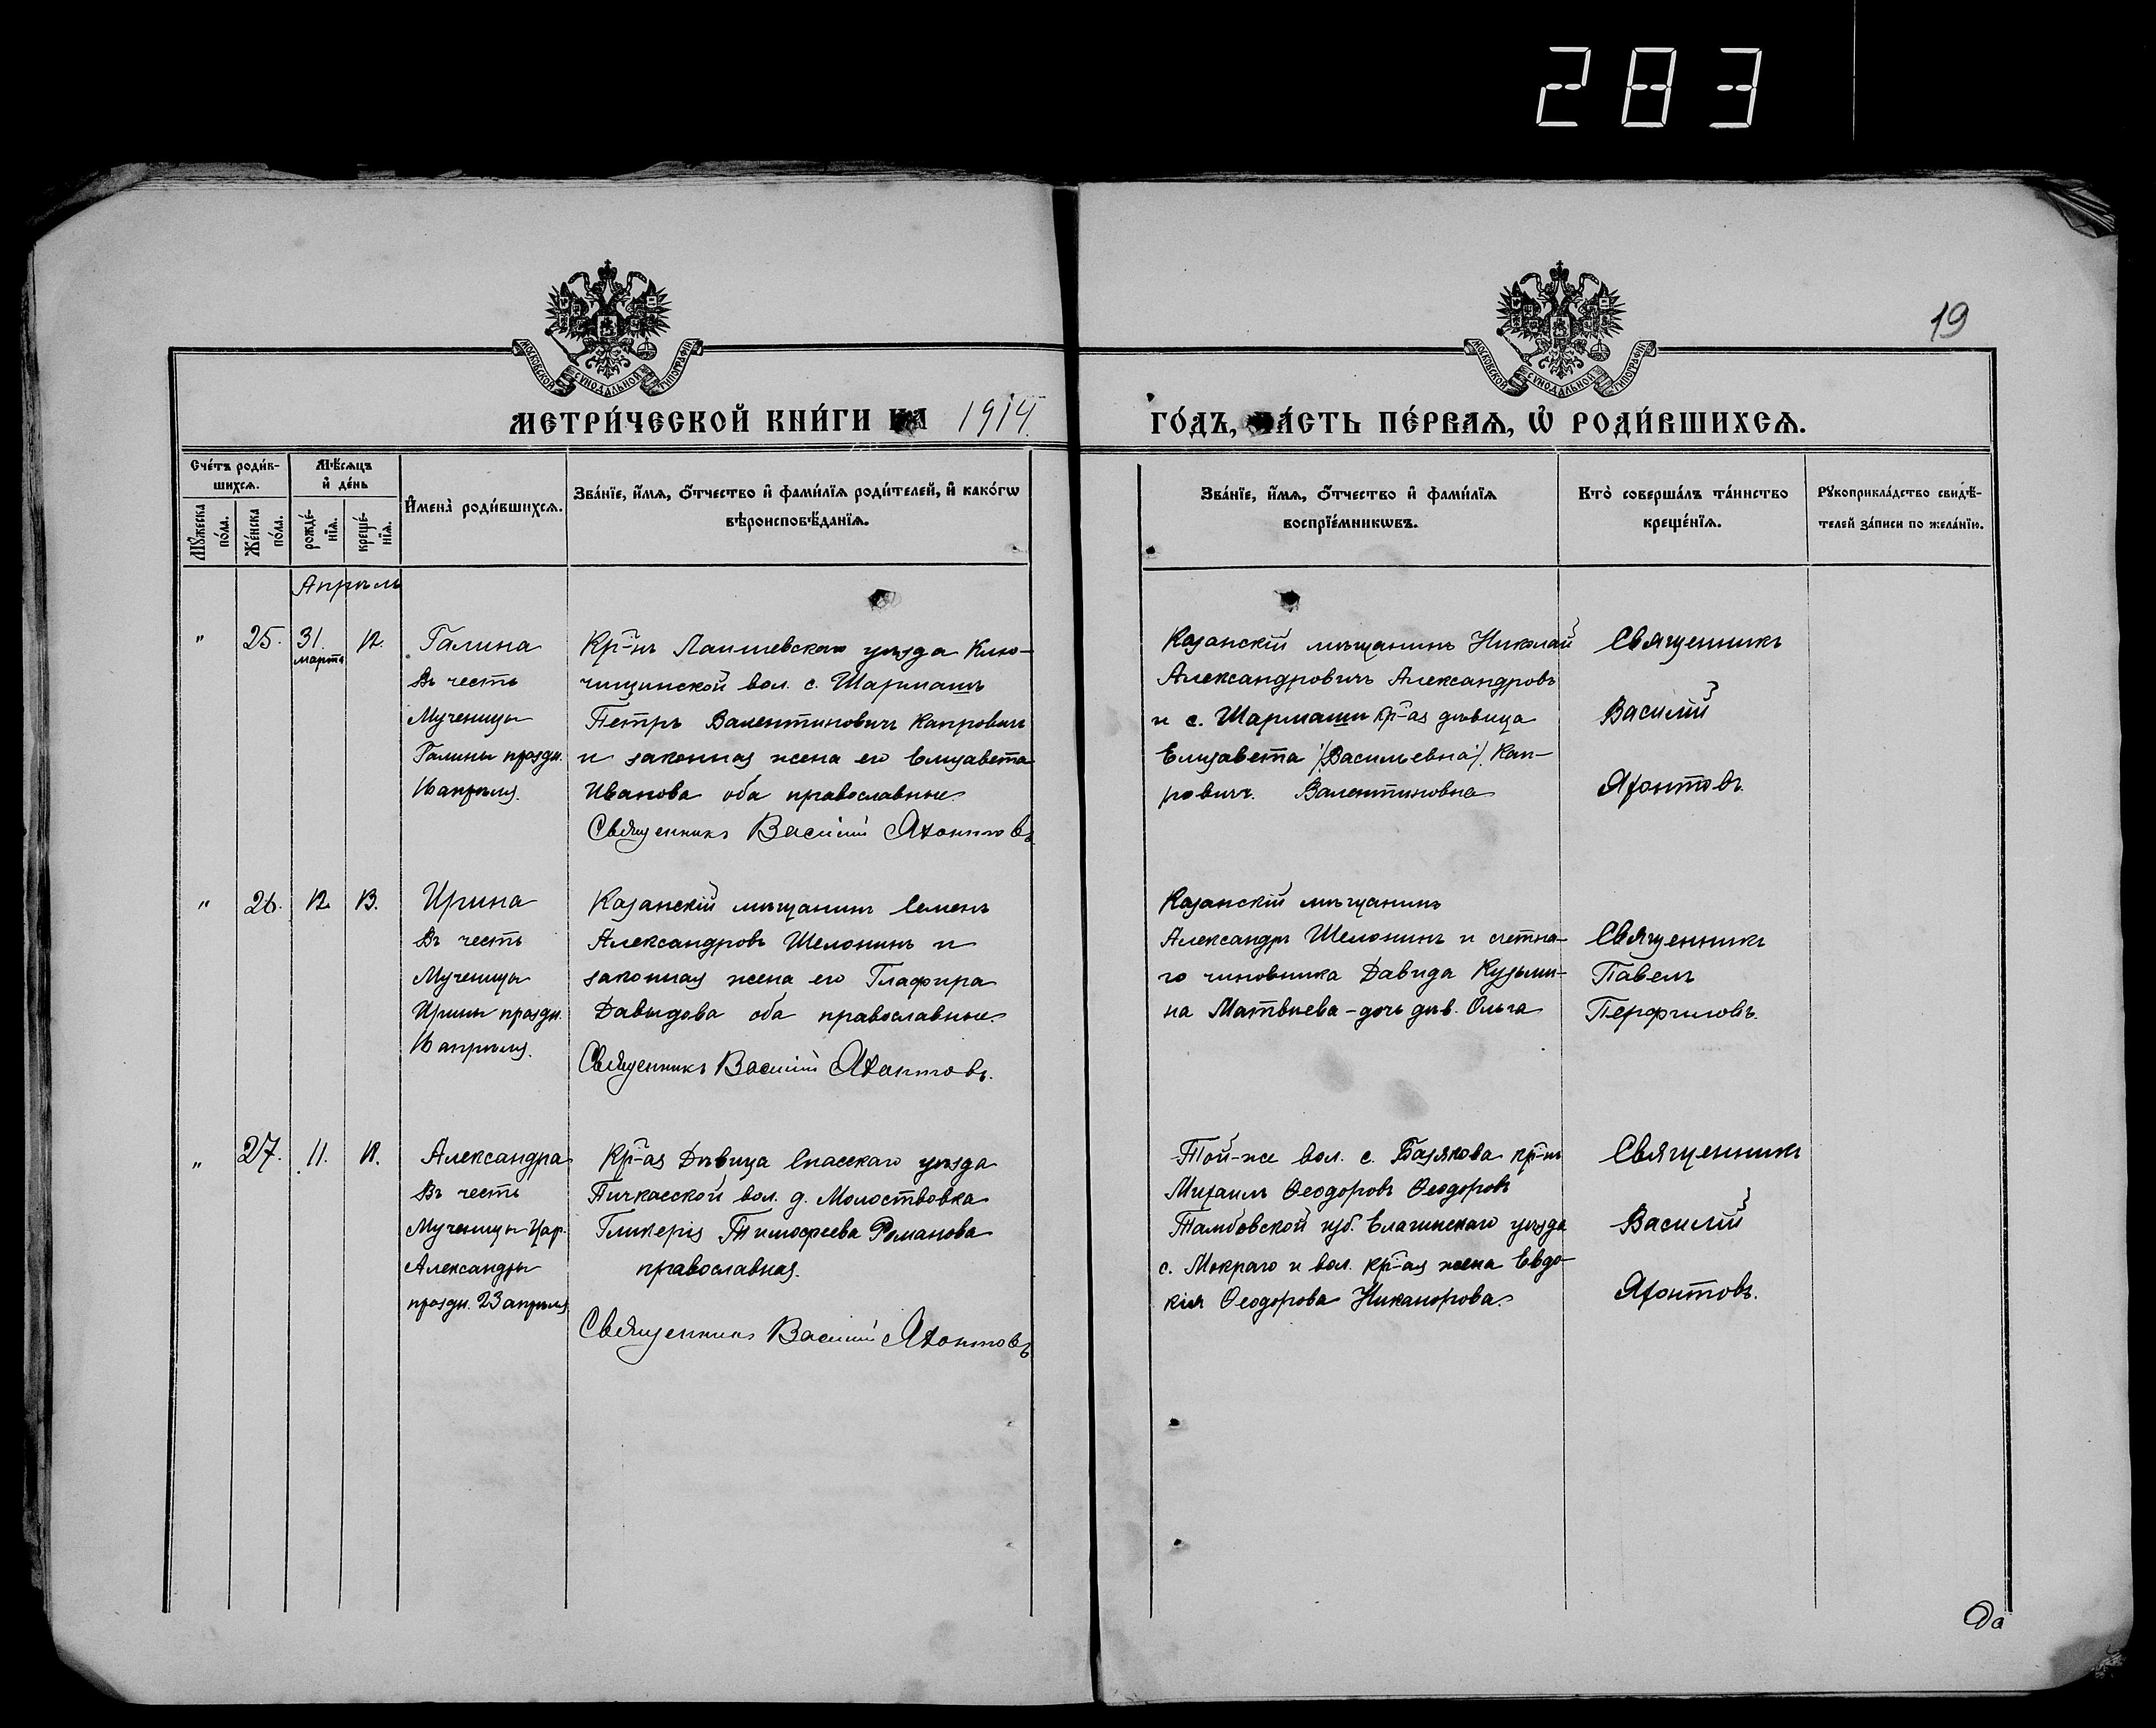 283
19
МОСКОВСКОЙ СѴНОДАЛЬНОЙ ТИПОГРАФІИ
МОСКОВСКОЙ СѴНОДАЛЬНОЙ ТИПОГРАФІИ
МЕТРИ́ЧЕСКОЙ КНИ́ГИ НА 1914
ГО́ДЪ, ЧА́СТЬ ПЕ́РВАѦ, Ѡ҆ РОДИ́ВШИХСѦ.
Сче́тъ роди́в-
шихсѧ.
Мꙋ́жеска по́ла.
Же́нска по́ла.
Мѣ́сѧцъ
и҆ де́нь
рожде́-нїѧ.
креще́-нїѧ.
И҆мена̀ роди́вшихсѧ.
Зва́нїе, и҆́мѧ, ѻ҆́тчество и҆ фами́лїѧ роди́телей, и҆ како́гѡ
вѣроисповѣ́данїѧ.
Зва́нїе, и҆́мѧ, ѻ҆́тчество и҆ фами́лїѧ
воспрїе́мникѡвъ.
Кто̀ соверша́лъ та́инство
креще́нїѧ.
Рꙋкоприкла́дство свидѣ́-
телей за́писи по жела́нїю.
Апрѣль
" 25. 31. марта 12.
Галина
Въ честь
Мученицы
Галины праздн.
16 апрѣля.
Кр-нъ Лаишевскаго уѣзда Клю-
чищинской вол. с. Шармашъ
Петръ Валентиновичъ Капровичъ
и законная жена его Елизавета
Иванова оба православные.
Священникъ Василій Яхонтовъ
Казанскій мѣщанинъ Николай
Александровичъ Александровъ
и с. Шармаши кр-ая дѣвица
Елизавета /Васильевна/ Кап-
ровичъ. Валентиновна
Священникъ
Василій
Яхонтовъ.
" 26. 12. 13.
Ирина
Въ честь
Мученицы
Ирины праздн.
16 апрѣля.
Казанскій мѣщанинъ Семенъ
Александровъ Шелонинъ и
законная жена его Глафира
Давыдова оба православные.
Священникъ Василій Яхонтовъ.
Казанскій мѣщанинъ
Александръ Шелонинъ и счетна-
го чиновника Давида Кузьми-
на Матвѣева - дочь дѣв. Ольга
Священникъ
Павелъ
Перфиловъ.
" 27. 11. 12.
Александра
Въ честь
Мученицы Цар.
Александры
праздн. 23 апрѣля
Кр-ая Дѣвица Спасскаго уѣзда
Пичкасской вол. д. Молоствовка
Гликерія Тимофеева Романова
православная.
Священникъ Василій Яхонтовъ
Той-же вол. с. Базякова кр-нъ
Михаилъ Ѳеодоровъ Ѳеодоровъ
Тамбовской губ. Елатинскаго уѣзда
с. Мокраго и вол. кр-ая жена Евдо-
кія Ѳеодорова Никанорова.
Священникъ
Василій
Яхонтовъ.